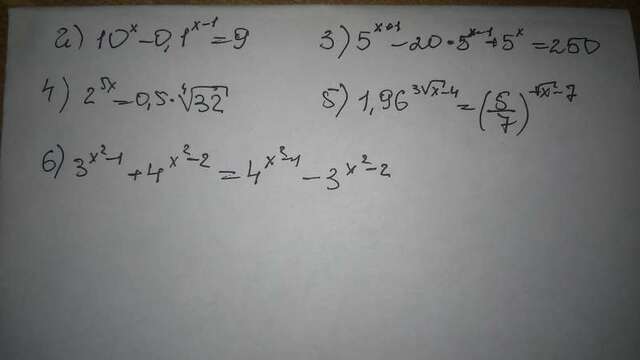 2) 10^x - 0,1^{x-1} = 9 3) 5^{x+1} - 20·5^{x-1} + 5^x = 250
4) 2^{5x} = 0,5·⁴√32 5) 1,96^{3√x-4} = (5/7)^{√x-7}
6) 3^{x²-1} + 4^{x²-2} = 4^{x²-1} - 3^{x²-2}